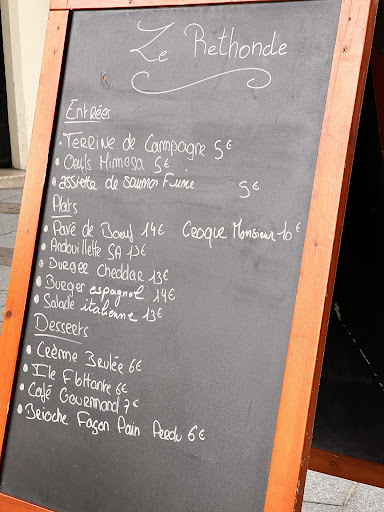 Le Rethonde
Entrées
• Terrine de Campagne 5€
• Oeufs Mimosa 5€
• assiette de saumon Fumé 5€
Plats
• Pavé de Boeuf 14€ Croque Monsieur 10€
• Andouillette 5A 13€
• Burger Cheddar 13€
• Burger espagnol 14€
• Salade italienne 13€
Desserts
• Crème Brulée 6€
• Ile Flottante 6€
• Café Gourmand 7€
• Brioche Façon Pain Perdu 6€